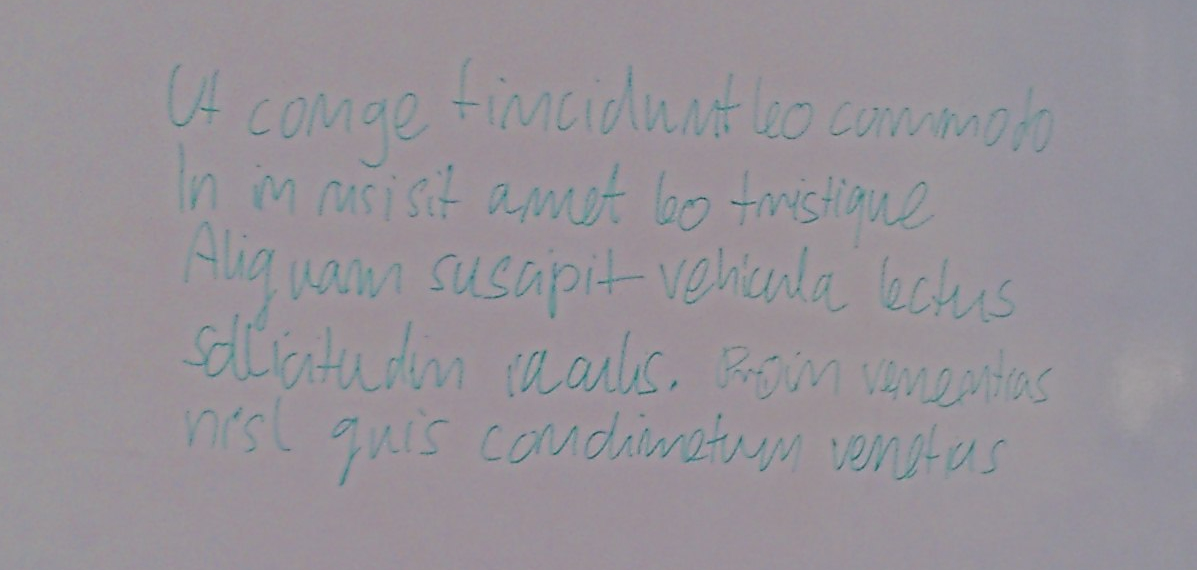 Ut conge tincidunt leo commodo
In in nisi sit amet leo tristique
Aliquam suscipit vehicula lectus
sollicitudin iaculis. Proin venenatis
nisl quis condimetum venetus